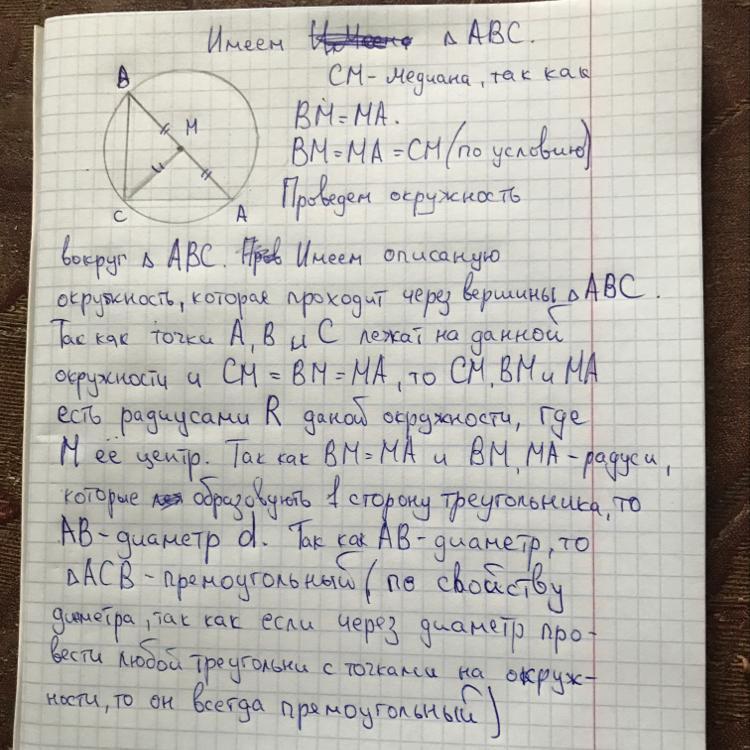 Имеем △ ABC.
CM - медиана, так как
BM = MA.
BM = MA = CM (по условию)
Проведем окружность
B
M
C
A
вокруг △ ABC. Имеем описаную
окружность, которая проходит через вершины △ ABC.
Так как точки A, B и C лежат на данной
окружности и CM = BM = MA, то CM, BM и MA
есть радиусами R даной окружности, где
M её центр. Так как BM = MA и BM, MA - радуси,
которые образовують 1 сторону треугольника, то
AB - диаметр d. Так как AB - диаметр, то
△ ACB - премоугольный (по свойству
диметра, так как если через диаметр про-
вести любой треугольни с точками на окруж-
ности, то он всегда премоугольный)